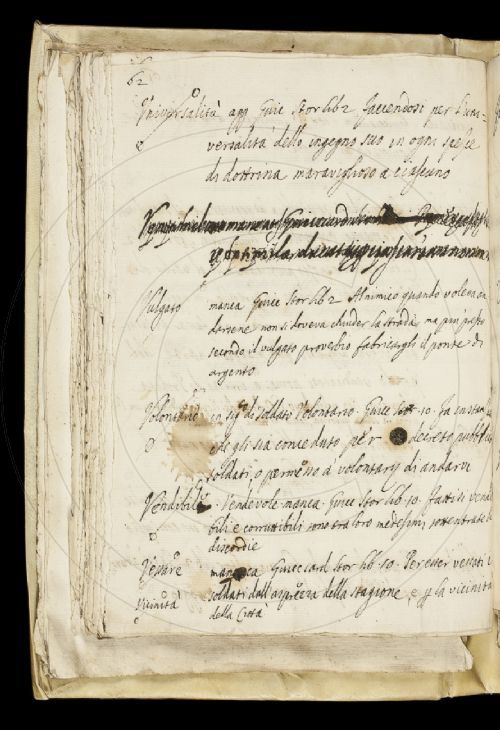 62
Universalità app Guic Stor lib 2 facendosi per l'uni=
versalità dello ingegno suo in ogni specie
di dottrina maraviglioso a ciascuno
Vulgato manca Guic Stor lib 2 Al nimico quando voleva an
darsene non si doveva chiuder la strada, ma più presto
secondo il vulgato proverbio fabricargli il ponte di
argento
Volontario in sig. di soldato Volontario. Guic Stor 10. fa instan
che gli sia conceduto per decreto pubblic
soldati, o permesso a volontarij di andarvi
Vendibile. Vendevole manca. Guic Stor lib. 10. fattisi vendi
bili e corruttibili sono tra loro medesimi sottentrate le
discordie
Vessare manca Guicciard Stor lib. 10. Per esser vessati i
Vicinità soldati dall'asprezza della stagione, e p la vicinità
della Città